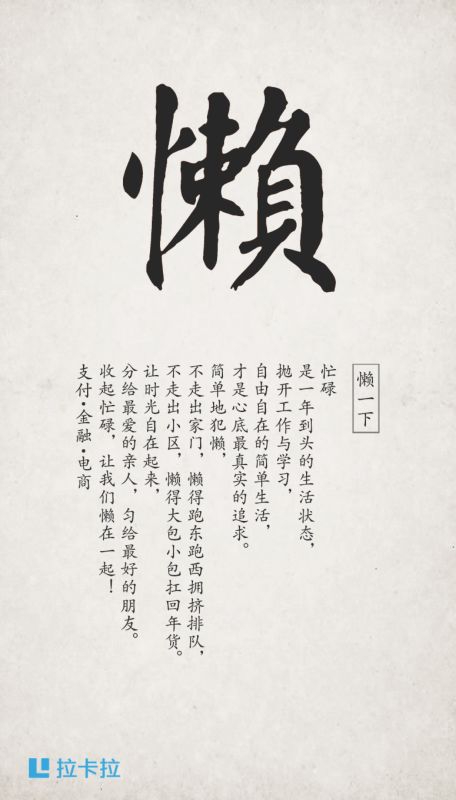 懶
懒一下
忙碌
是一年到头的生活状态，
抛开工作与学习，
自由自在的简单生活，
才是心底最真实的追求。
简单地犯懒，
不走出家门，懒得跑东跑西拥挤排队，
不走出小区，懒得大包小包扛回年货。
让时光自在起来，
分给最爱的亲人，匀给最好的朋友。
收起忙碌，让我们懒在一起！
支付·金融·电商
拉卡拉